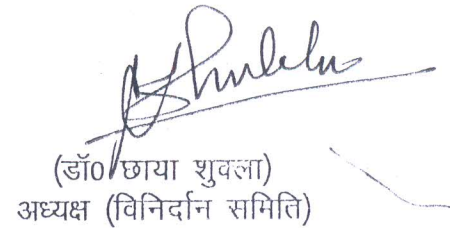 (डॉ0 छाया शुक्ला)
अध्यक्ष (विनिर्दान समिति)